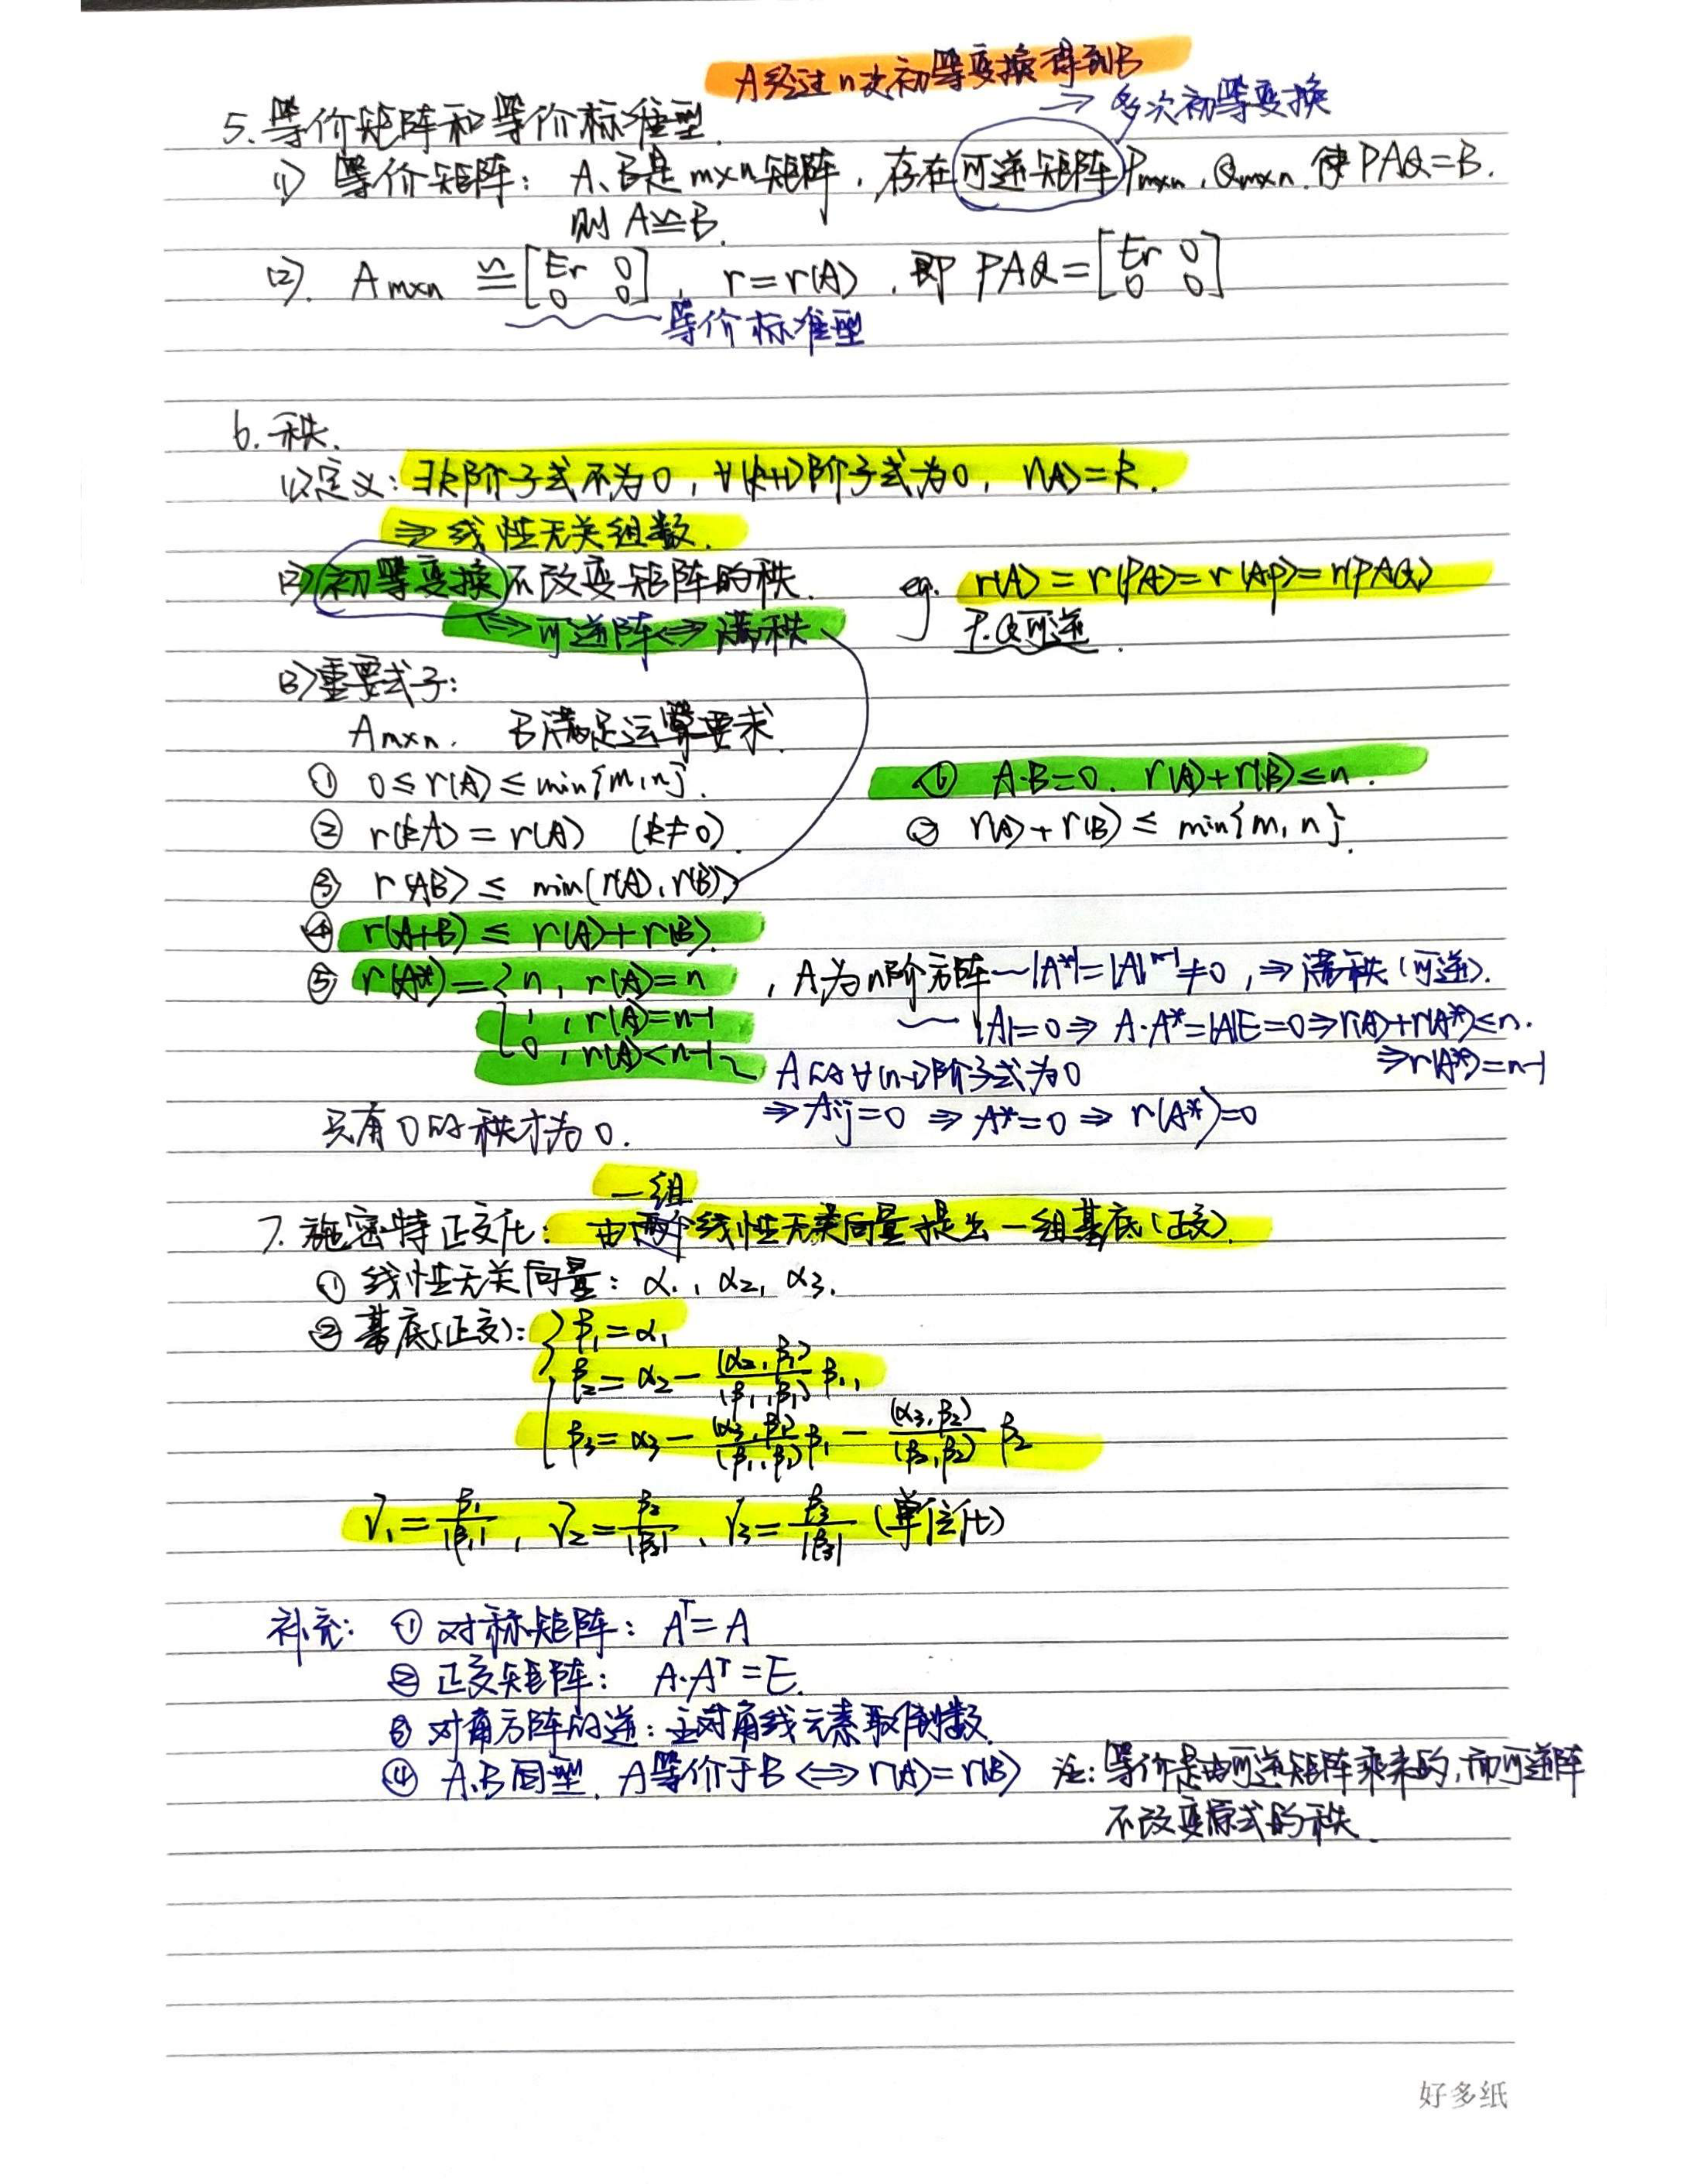 A经过n次初等变换得到B
→ 多次初等变换
5. 等价矩阵和等价标准型.
(1) 等价矩阵: A、B是m×n矩阵, 存在可逆矩阵Pm×n, Qm×n, 使PAQ=B.
则 A≌B.
(2). Am×n ≌ [Er 0; 0 0], r=r(A), 即 PAQ=[Er 0; 0 0]
等价标准型
6. 秩.
(1)定义: ∃k阶子式不为0, ∀(k+1)阶子式为0, r(A)=k.
⇒ 线性无关组数.
(2)初等变换不改变矩阵的秩. eg. r(A)=r(PA)=r(AP)=r(PAQ)
⇔可逆阵⇔满秩 P.Q可逆.
(3)重要式子:
Am×n. B满足运算要求.
① 0≤r(A)≤min{m,n}. ⑥ A·B=0. r(A)+r(B)≤n.
② r(kA)=r(A) (k≠0). ⑦ r(A)+r(B)≤ min{m, n}.
③ r(AB)≤ min(r(A), r(B))
④ r(A+B)≤ r(A)+r(B).
⑤ r(A*)={n, r(A)=n , A为n阶方阵 —|A*|=|A|ⁿ⁻¹≠0, ⇒满秩(可逆).
1, r(A)=n-1 |A|=0⇒ A·A*=|A|E=0⇒r(A)+r(A*)≤n.
0, r(A)<n-1 A的∀(n-1)阶子式为0 ⇒r(A*)=n-1
⇒ Aij=0 ⇒ A*=0 ⇒ r(A*)=0
只有0的秩才为0.
一组
7. 施密特正交化: 由两个线性无关向量提出一组基底(正交).
① 线性无关向量: α₁, α₂, α₃.
② 基底(正交): { β₁=α₁
β₂=α₂-(α₂,β₁)/(β₁,β₁) β₁,
β₃=α₃-(α₃,β₁)/(β₁,β₁) β₁-(α₃,β₂)/(β₂,β₂) β₂
γ₁=β₁/|β₁|, γ₂=β₂/|β₂|, γ₃=β₃/|β₃| (单位化)
补充: ① 对称矩阵: Aᵀ=A
② 正交矩阵: A·Aᵀ=E.
③ 对角方阵的逆: 主对角线元素取倒数.
④ A.B同型. A等价于B ⇔ r(A)=r(B) 注: 等价是由可逆矩阵乘来的, 而可逆阵
不改变原式的秩.
好多纸